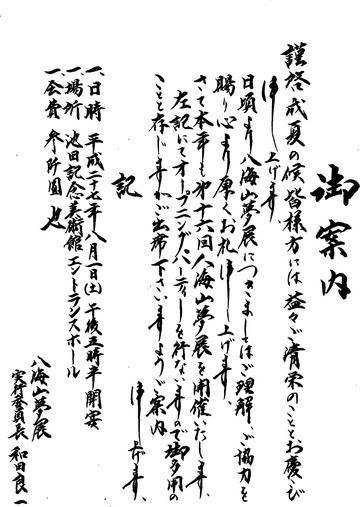 御案内
謹啓 成夏の候 皆様方には益々ご清栄のこととお慶び
申し上げます
日頃より八海山夢展につきましてはご理解、ご協力を
賜り心より厚くお礼申し上げます。
さて本年も第十六回八海山夢展を開催いたします。
左記にてオープニングパーティーを行ないますので御多用の
ことと存じますがご出席下さいますようご案内
申し上げます。
記
一、日時 平成二十七年八月一日(土)午後五時半開宴
一、場所 池田記念美術館エントランスホール
一、会費 参阡圓也
八海山夢展
実行委員長 和田良一